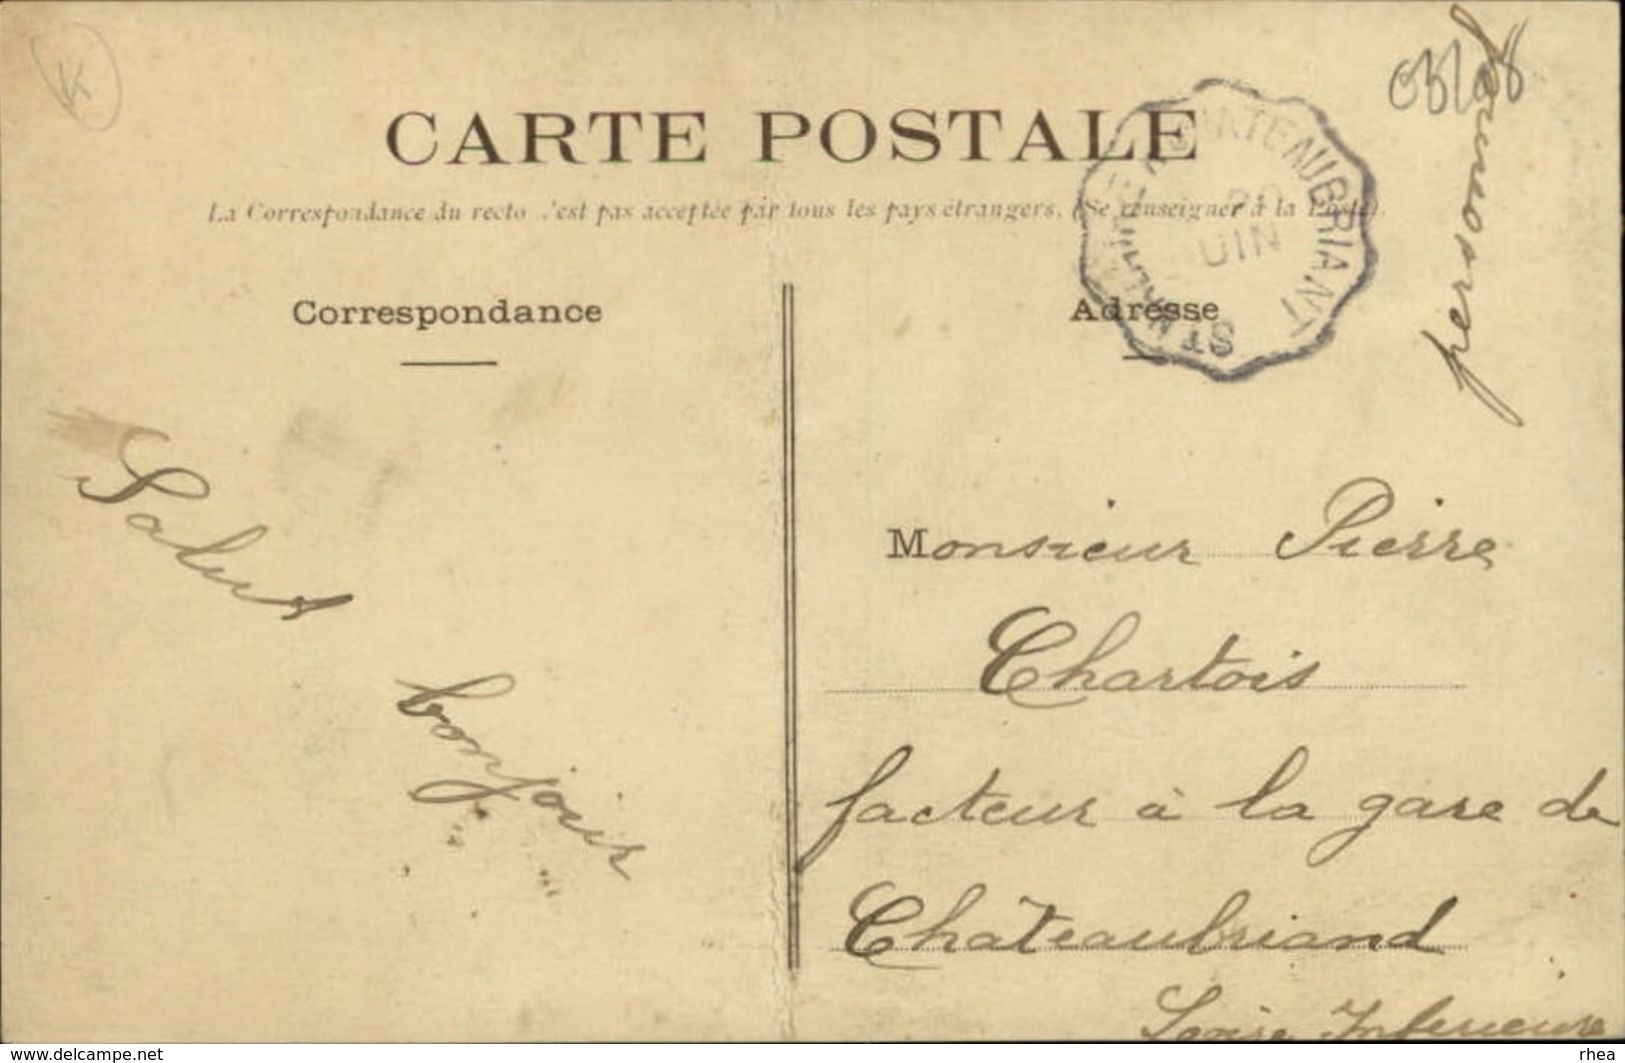 K
CARTE POSTALE
La Correspondance du recto n'est pas acceptée par tous les pays étrangers. (Se renseigner à la Poste).
CHATEAUBRIANT
20
JUIN
ST NAZAIRE
personnelle
Correspondance
Adresse
Salut
bonjour
Monsieur Pierre
Chartois
facteur à la gare de
Châteaubriand
Loire Inferieure
www.delcampe.net
rhea